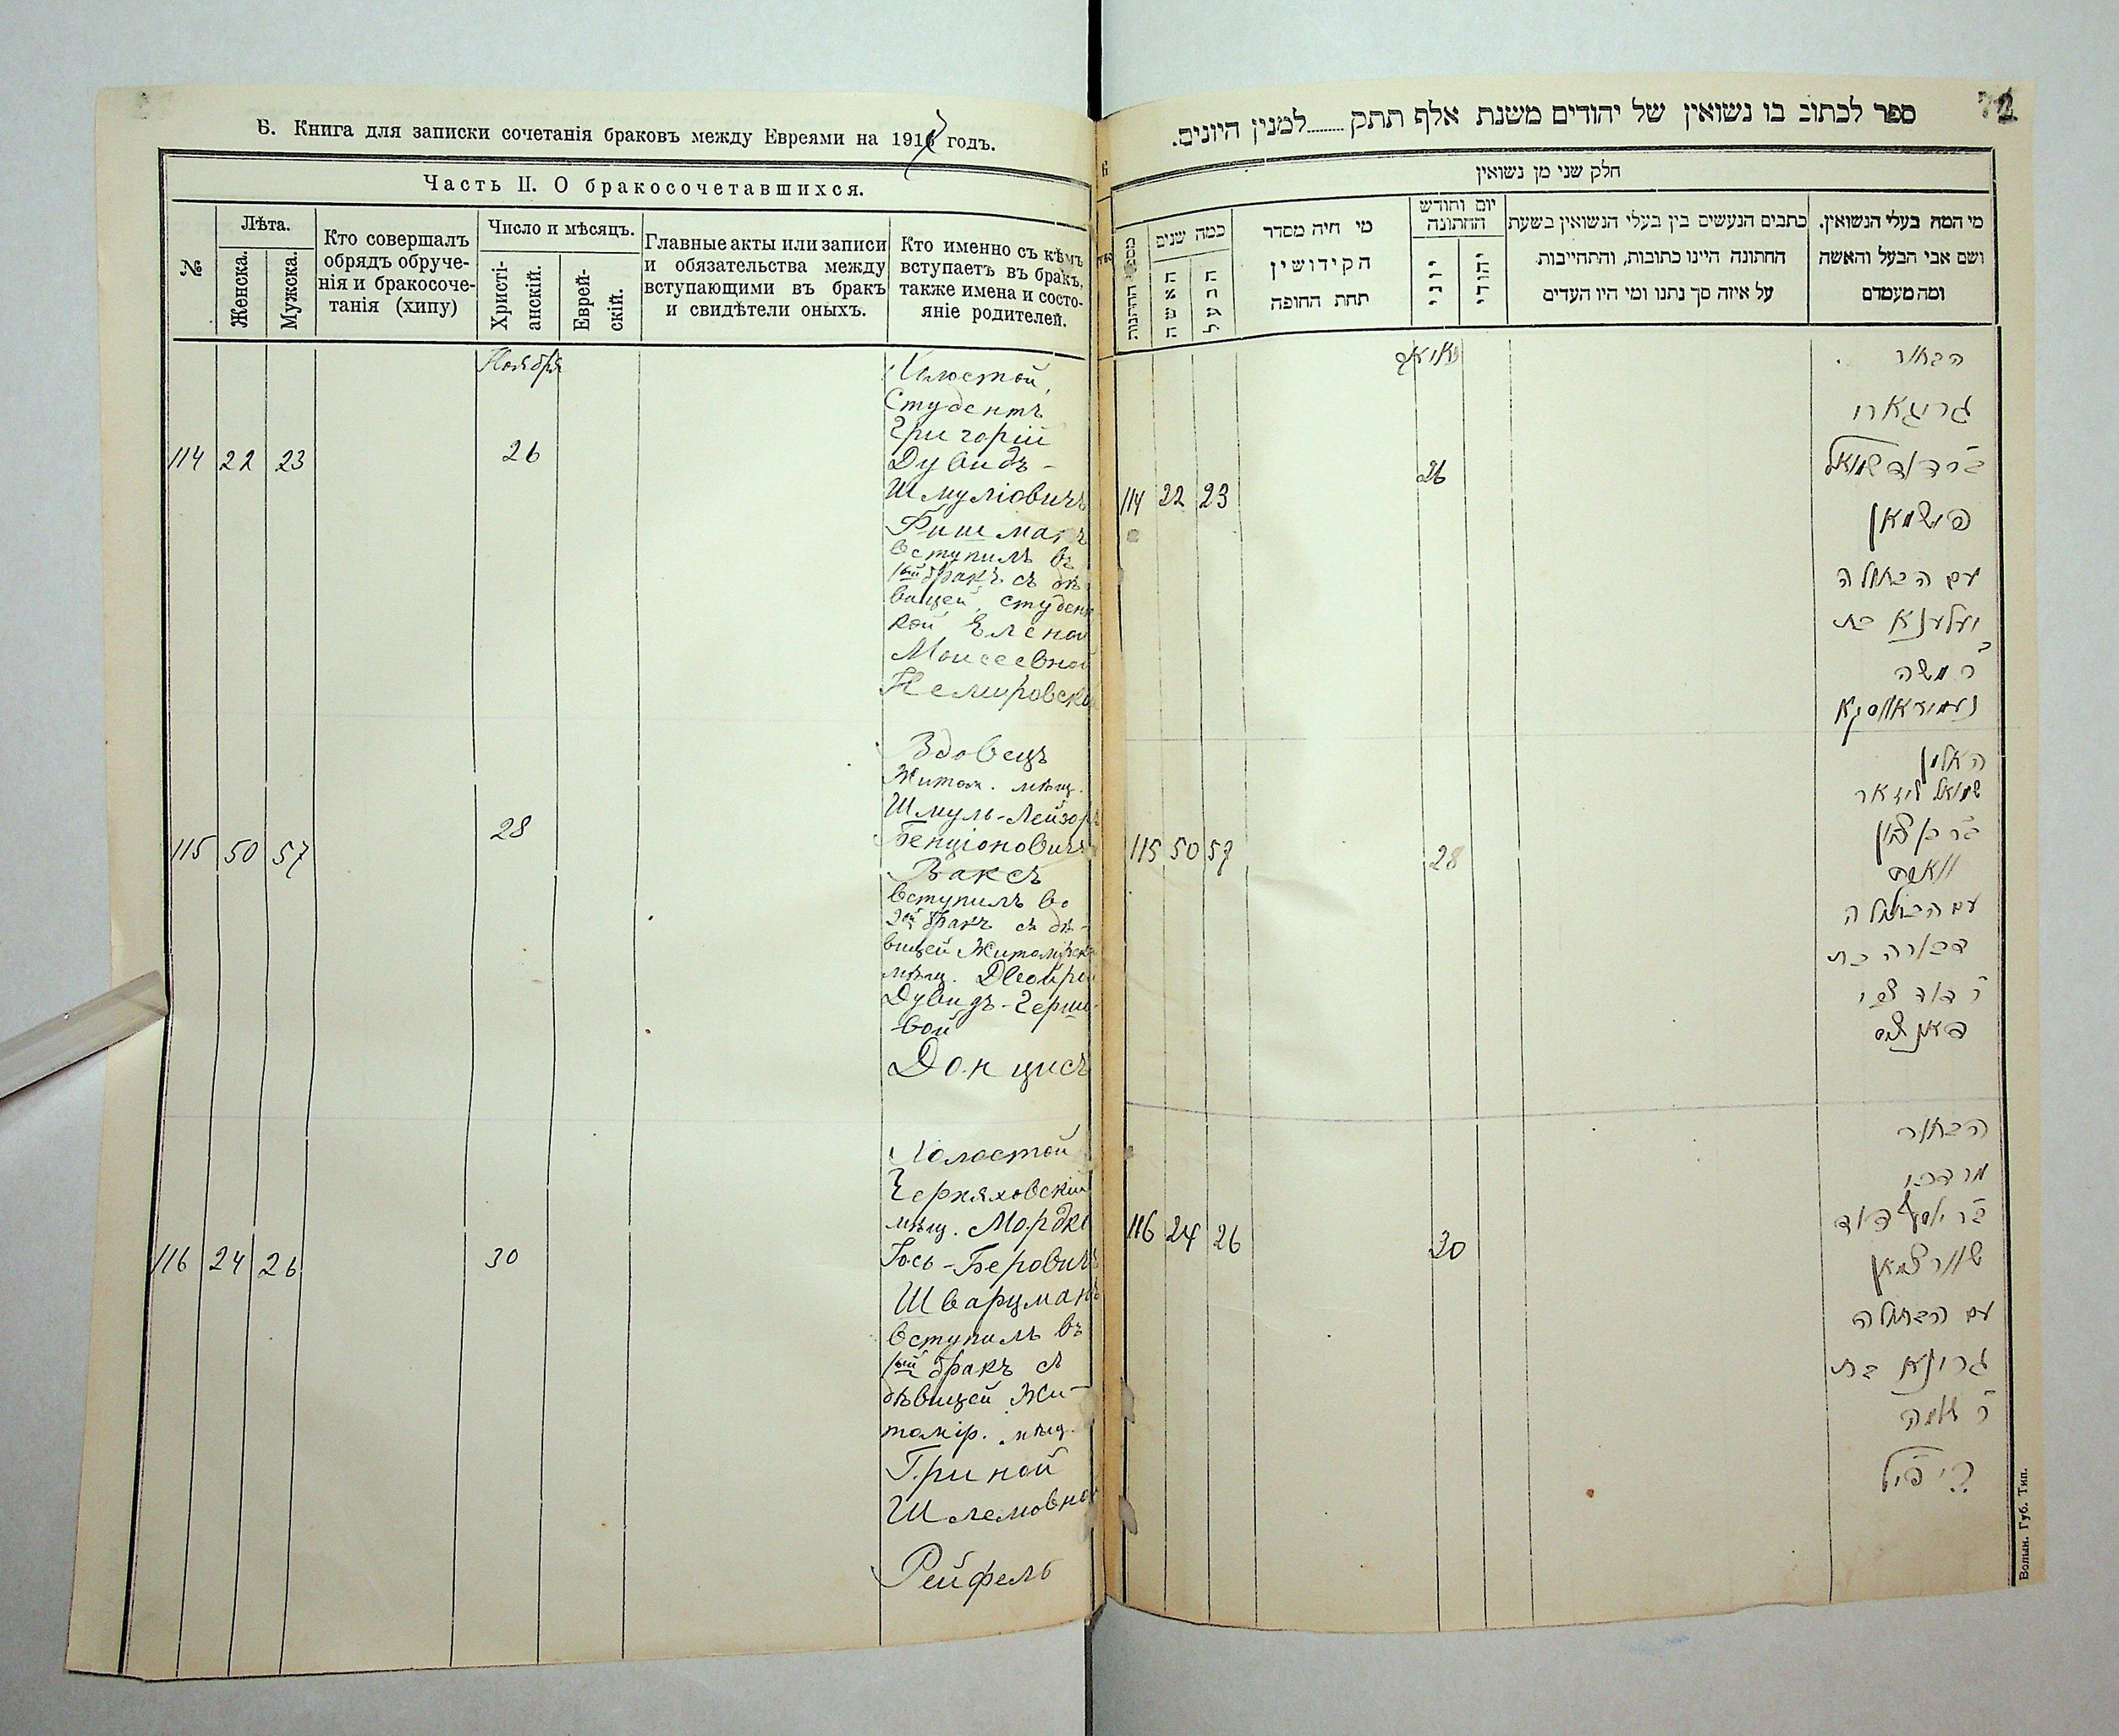 Б. Книга для записки сочетанія браковъ между Евреями на 1917 годъ.
Часть II. О бракосочетавшихся.
№
Лѣта.
Женска.
Мужска.
Кто совершалъ
обрядъ обруче-
нія и бракосоче-
танія (хипу)
Число и мѣсяцъ.
Христі-
анскій.
Еврей-
скій.
Главные акты или записи
и обязательства между
вступающими въ бракъ
и свидѣтели оныхъ.
Кто именно съ кѣмъ
вступаетъ въ бракъ,
также имена и состо-
яніе родителей.
Ноября
114 22 23 26
Холостой,
Студентъ
Григорій
Дувидъ-
Шмуліовичъ
Фишманъ
вступилъ въ
1ый бракъ съ дѣ
вицей, студент
кой Еленой
Моисеевной
Немировской
115 50 57 28
Вдовецъ
Житом. мѣщ.
Шмуль-Лейзоръ
Бенціоновичъ
Ваксъ
вступилъ во
2ой бракъ съ дѣ-
вицей Житомірск
мѣщ. Двойрой
Дувидъ-Герш
вой
Донцисъ
116 24 26 30
Холостой
Черняховскій
мѣщ. Мордко
Іось-Беровичъ
Шварцманъ
вступилъ въ
1ый бракъ съ
дѣвицей Жи-
томір. мѣщ.
Гриной
Шлемовной
Рейфель
72
ספר לכתוב בו נשואין של יהודים משנת אלף תתק ........ למנין היונים.
חלק שני מן נשואין
מספר החתונות
כמה שנים
האשה
הבעל
מי היה מסדר
הקידושין
תחת החופה
יום וחודש
החתונה
יוני
יהודי
כתבים הנעשים בין בעלי הנשואין בשעת
החתונה היינו כתובות, והתחייבות
על איזה סך נתנו ומי היו העדים
מי המה בעלי הנשואין.
ושם אבי הבעל והאשה
ומה מעמדם
114 22 23 26
הבחור
גריגארי
ב"ר דוד שמואל
פישמאן
עם הבתולה
יעלענא בת
ר' משה
נעמיראווסקא
115 50 57 28
האלמן
שמואל ליזאר
ב"ר בן ציון
וואקס
עם הבתולה
דבורה בת
ר' דוד צבי
116 24 26 30
הבחור
מרדכי
שווארצמאן
עם הבתולה
גרונא בת
ר' שלמה
רייפיל
Волын. Губ. Тип.